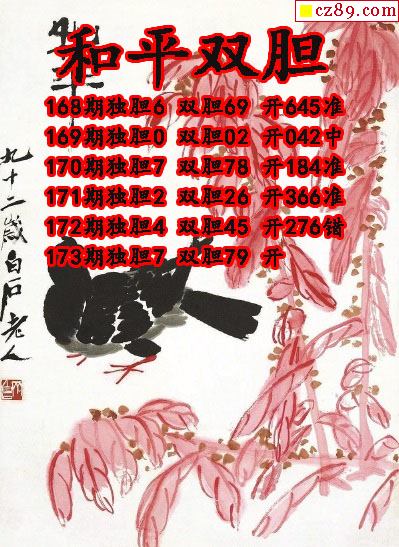 cz89.com
和平双胆
168期独胆6 双胆69 开645准
169期独胆0 双胆02 开042中
170期独胆7 双胆78 开184准
171期独胆2 双胆26 开366准
172期独胆4 双胆45 开276错
173期独胆7 双胆79 开
九十二岁白石老人